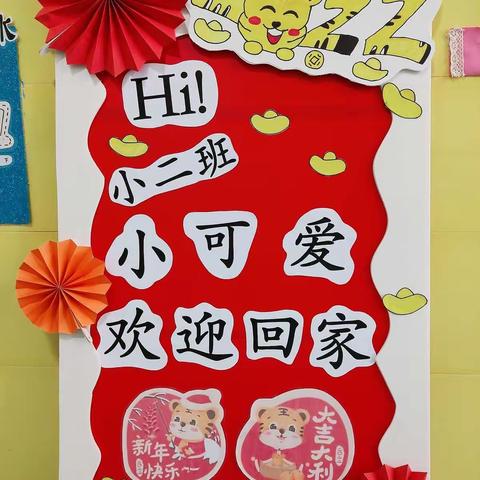 水
2022
Hi!
小二班
小可爱
欢迎回家
新年
快乐
大吉
大利